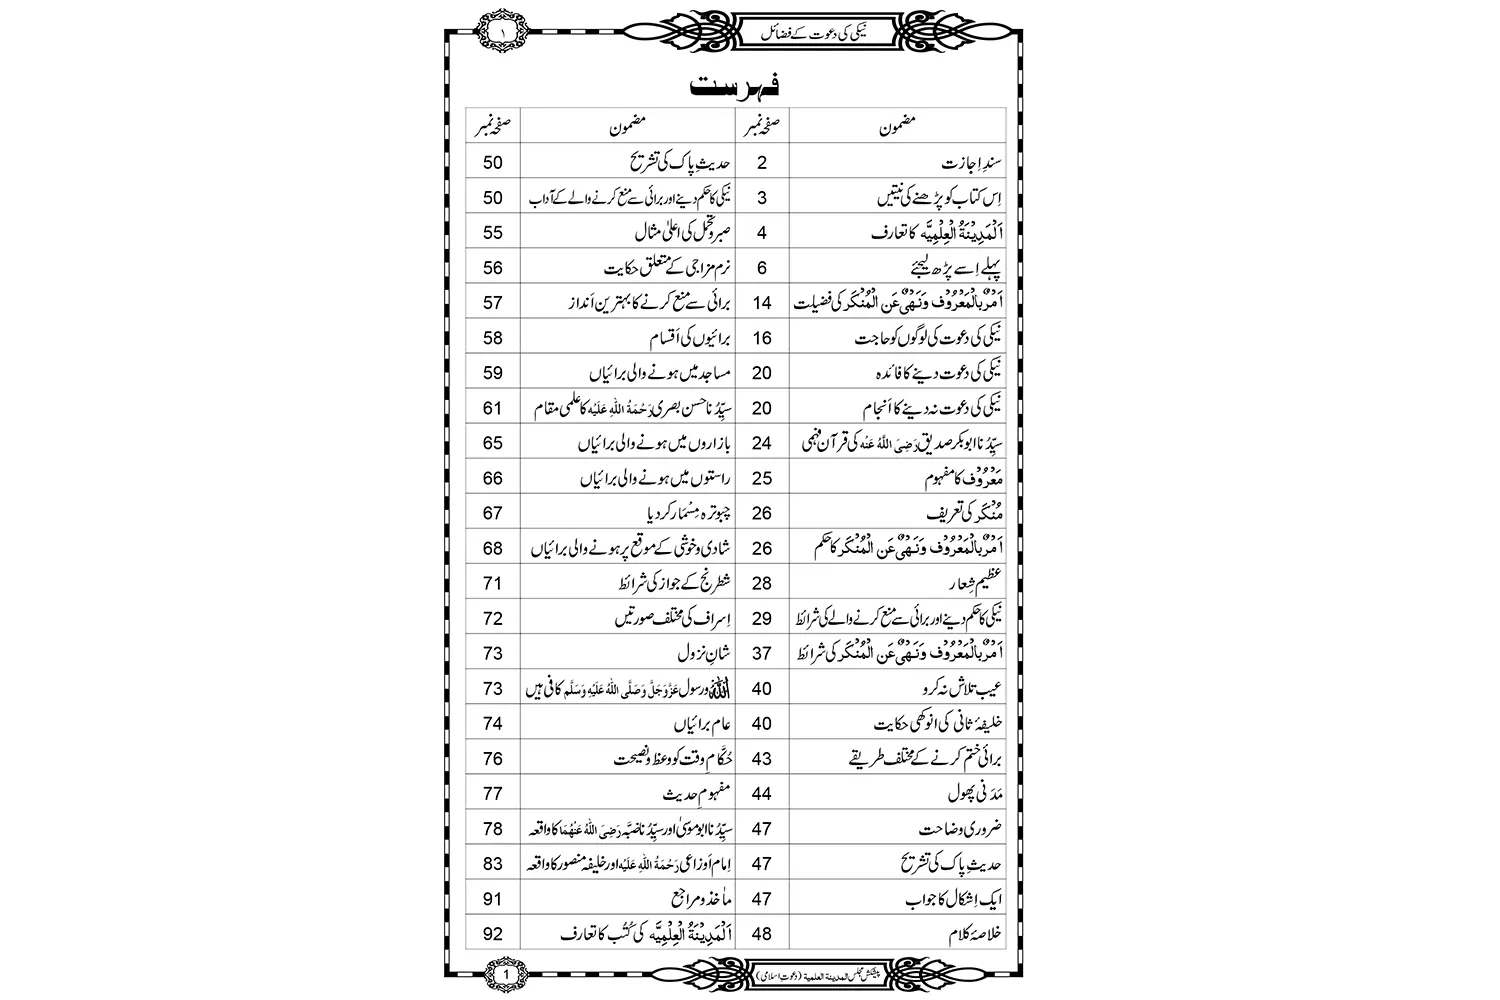 نیکی کی دعوت کے فضائل
۱
فہرست
مضمون صفحہ نمبر مضمون صفحہ نمبر
سندِ اِجازت 2 حدیثِ پاک کی تشریح 50
اِس کتاب کو پڑھنے کی نیتیں 3 نیکی کا حکم دینے اور برائی سے منع کرنے والے کے آداب 50
اَلْمَدِیْنَۃُ الْعِلْمِیَّہ کا تعارف 4 صبر و تحمل کی اعلیٰ مثال 55
پہلے اِسے پڑھ لیجئے 6 نرم مزاجی کے متعلق حکایت 56
اَمْرٌ بِالْمَعْرُوْف وَنَہْیٌ عَنِ الْمُنْکَر کی فضیلت 14 برائی سے منع کرنے کا بہترین اَنداز 57
نیکی کی دعوت کی لوگوں کو حاجت 16 برائیوں کی اَقسام 58
نیکی کی دعوت دینے کا فائدہ 20 مساجد میں ہونے والی برائیاں 59
نیکی کی دعوت نہ دینے کا اَنجام 20 سیِّدُنا حسن بصری رَحْمَۃُ اللّٰہِ عَلَیْہ کا علمی مقام 61
سیِّدُنا ابوبکر صدیق رَضِیَ اللّٰہُ عَنْہ کی قرآن فہمی 24 بازاروں میں ہونے والی برائیاں 65
مَعْرُوْف کا مفہوم 25 راستوں میں ہونے والی برائیاں 66
مُنْکَر کی تعریف 26 چبوترہ مِسْمار کر دیا 67
اَمْرٌ بِالْمَعْرُوْف وَنَہْیٌ عَنِ الْمُنْکَر کا حکم 26 شادی و خوشی کے موقع پر ہونے والی برائیاں 68
عظیم شِعار 28 شطرنج کے جواز کی شرائط 71
نیکی کا حکم دینے اور برائی سے منع کرنے والے کی شرائط 29 اِسراف کی مختلف صورتیں 72
اَمْرٌ بِالْمَعْرُوْف وَنَہْیٌ عَنِ الْمُنْکَر کی شرائط 37 شانِ نزول 73
عیب تلاش نہ کرو 40 اللہ ورسول عَزَّوَجَلَّ وَصَلَّی اللّٰہُ عَلَیْہِ وَسَلَّم کافی ہیں 73
خلیفۂ ثانی کی انوکھی حکایت 40 عام برائیاں 74
برائی ختم کرنے کے مختلف طریقے 43 حُکَّامِ وقت کو وعظ و نصیحت 76
مَدَنی پھول 44 مفہومِ حدیث 77
ضروری وضاحت 47 سیِّدُنا ابوموسیٰ اور سیِّدُنا ضَبَّہ رَضِیَ اللّٰہُ عَنْہُمَا کا واقعہ 78
حدیثِ پاک کی تشریح 47 اِمام اَوزاعی رَحْمَۃُ اللّٰہِ عَلَیْہ اور خلیفہ منصور کا واقعہ 83
ایک اِشکال کا جواب 47 ماٰخذ و مراجع 91
خلاصۂ کلام 48 اَلْمَدِیْنَۃُ الْعِلْمِیَّہ کی کُتُب کا تعارف 92
پیشکش مجلس المدینۃ العلمیۃ (دعوتِ اسلامی)
1